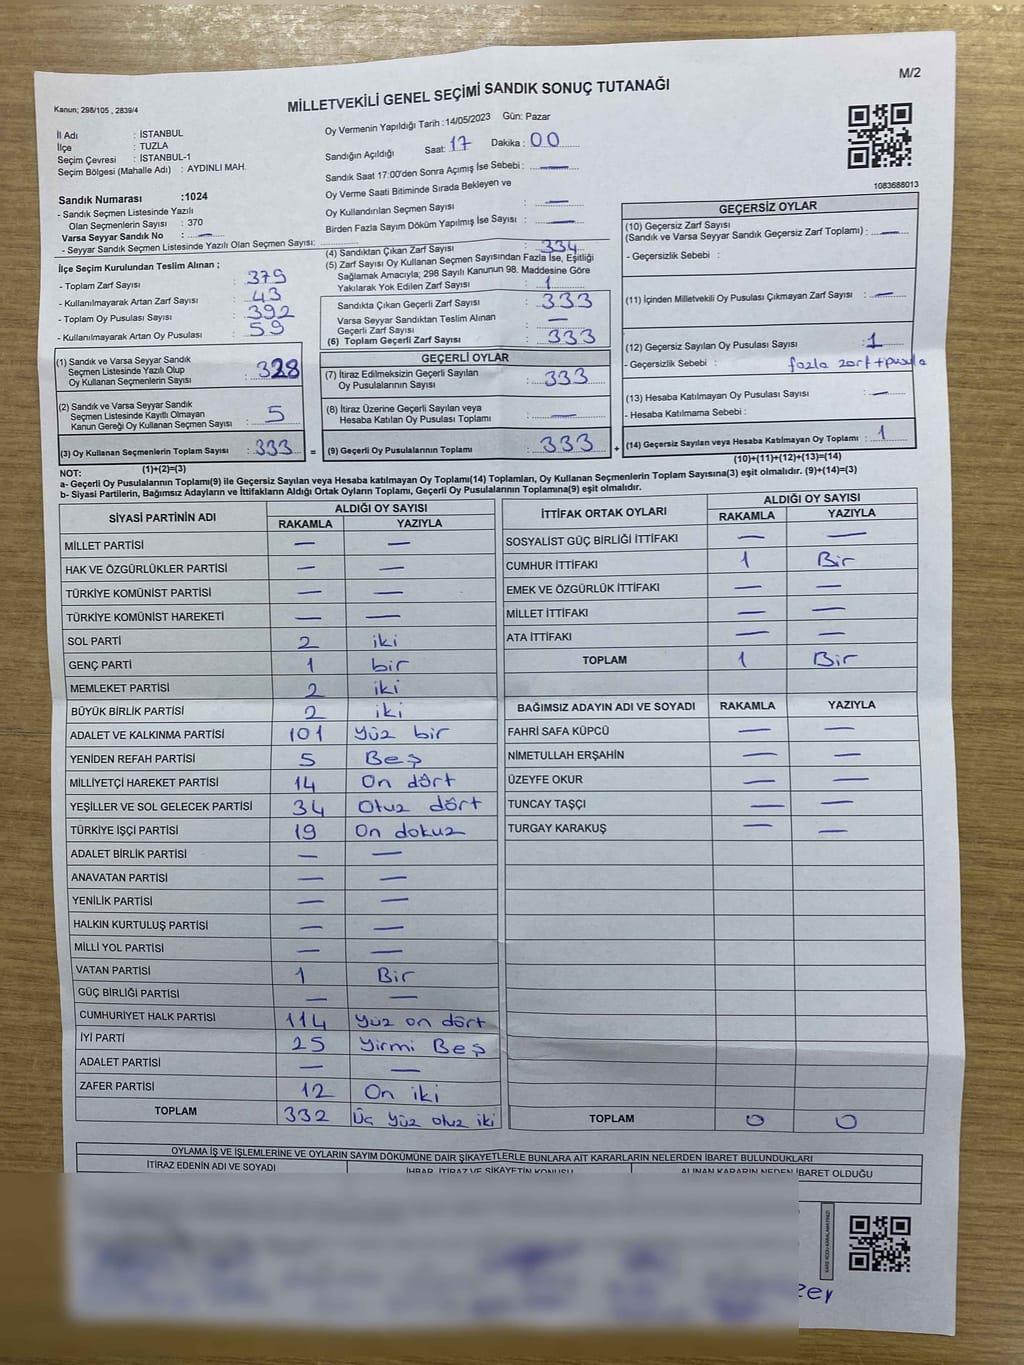 M/2
Kanun; 298/105 , 2839/4
MİLLETVEKİLİ GENEL SEÇİMİ SANDIK SONUÇ TUTANAĞI
İl Adı : İSTANBUL
İlçe : TUZLA
Seçim Çevresi : İSTANBUL-1
Seçim Bölgesi (Mahalle Adı) : AYDINLI MAH.
Oy Vermenin Yapıldığı Tarih :14/05/2023 Gün: Pazar
Sandığın Açıldığı Saat: 17 Dakika : 00
Sandık Saat 17:00'den Sonra Açımış İse Sebebi : —
Oy Verme Saati Bitiminde Sırada Bekleyen ve
Oy Kullandırılan Seçmen Sayısı : —
Birden Fazla Sayım Döküm Yapılmış İse Sayısı : —
1083688013
Sandık Numarası :1024
- Sandık Seçmen Listesinde Yazılı
Olan Seçmenlerin Sayısı : 370
Varsa Seyyar Sandık No : —
- Seyyar Sandık Seçmen Listesinde Yazılı Olan Seçmen Sayısı:
İlçe Seçim Kurulundan Teslim Alınan ;
- Toplam Zarf Sayısı : 375
- Kullanılmayarak Artan Zarf Sayısı : 43
- Toplam Oy Pusulası Sayısı : 392
- Kullanılmayarak Artan Oy Pusulası : 59
(1) Sandık ve Varsa Seyyar Sandık
Seçmen Listesinde Yazılı Olup
Oy Kullanan Seçmenlerin Sayısı : 328
(2) Sandık ve Varsa Seyyar Sandık
Seçmen Listesinde Kayıtlı Olmayan
Kanun Gereği Oy Kullanan Seçmen Sayısı : 5
(3) Oy Kullanan Seçmenlerin Toplam Sayısı : 333
(4) Sandıktan Çıkan Zarf Sayısı : 334
(5) Zarf Sayısı Oy Kullanan Seçmen Sayısından Fazla İse, Eşitliği
Sağlamak Amacıyla; 298 Sayılı Kanunun 98. Maddesine Göre
Yakılarak Yok Edilen Zarf Sayısı : 1
Sandıkta Çıkan Geçerli Zarf Sayısı : 333
Varsa Seyyar Sandıktan Teslim Alınan
Geçerli Zarf Sayısı : —
(6) Toplam Geçerli Zarf Sayısı : 333
GEÇERLİ OYLAR
(7) İtiraz Edilmeksizin Geçerli Sayılan
Oy Pusulalarının Sayısı : 333
(8) İtiraz Üzerine Geçerli Sayılan veya
Hesaba Katılan Oy Pusulası Toplamı : —
= (9) Geçerli Oy Pusulalarının Toplamı : 333 +
GEÇERSİZ OYLAR
(10) Geçersiz Zarf Sayısı
(Sandık ve Varsa Seyyar Sandık Geçersiz Zarf Toplamı) : —
- Geçersizlik Sebebi :
(11) İçinden Milletvekili Oy Pusulası Çıkmayan Zarf Sayısı : —
(12) Geçersiz Sayılan Oy Pusulası Sayısı : 1
- Geçersizlik Sebebi : fazla zarf+pusula
(13) Hesaba Katılmayan Oy Pusulası Sayısı : —
- Hesaba Katılmama Sebebi :
(14) Geçersiz Sayılan veya Hesaba Katılmayan Oy Toplamı : 1
NOT: (1)+(2)=(3)
(10)+(11)+(12)+(13)=(14)
a- Geçerli Oy Pusulalarının Toplamı(9) ile Geçersiz Sayılan veya Hesaba katılmayan Oy Toplamı(14) Toplamları, Oy Kullanan Seçmenlerin Toplam Sayısına(3) eşit olmalıdır. (9)+(14)=(3)
b- Siyasi Partilerin, Bağımsız Adayların ve İttifakların Aldığı Ortak Oyların Toplamı, Geçerli Oy Pusulalarının Toplamına(9) eşit olmalıdır.
SİYASİ PARTİNİN ADI ALDIĞI OY SAYISI
RAKAMLA YAZIYLA
MİLLET PARTİSİ — —
HAK VE ÖZGÜRLÜKLER PARTİSİ — —
TÜRKİYE KOMÜNİST PARTİSİ — —
TÜRKİYE KOMÜNİST HAREKETİ — —
SOL PARTİ 2 iki
GENÇ PARTİ 1 bir
MEMLEKET PARTİSİ 2 iki
BÜYÜK BİRLİK PARTİSİ 2 iki
ADALET VE KALKINMA PARTİSİ 101 Yüz bir
YENİDEN REFAH PARTİSİ 5 Beş
MİLLİYETÇİ HAREKET PARTİSİ 14 On dört
YEŞİLLER VE SOL GELECEK PARTİSİ 34 Otuz dört
TÜRKİYE İŞÇİ PARTİSİ 19 On dokuz
ADALET BİRLİK PARTİSİ — —
ANAVATAN PARTİSİ — —
YENİLİK PARTİSİ — —
HALKIN KURTULUŞ PARTİSİ — —
MİLLİ YOL PARTİSİ — —
VATAN PARTİSİ 1 Bir
GÜÇ BİRLİĞİ PARTİSİ — —
CUMHURİYET HALK PARTİSİ 114 Yüz on dört
İYİ PARTİ 25 Yirmi Beş
ADALET PARTİSİ — —
ZAFER PARTİSİ 12 On iki
TOPLAM 332 Üç Yüz otuz iki
İTTİFAK ORTAK OYLARI ALDIĞI OY SAYISI
RAKAMLA YAZIYLA
SOSYALİST GÜÇ BİRLİĞİ İTTİFAKI — —
CUMHUR İTTİFAKI 1 Bir
EMEK VE ÖZGÜRLÜK İTTİFAKI — —
MİLLET İTTİFAKI — —
ATA İTTİFAKI — —
TOPLAM 1 Bir
BAĞIMSIZ ADAYIN ADI VE SOYADI RAKAMLA YAZIYLA
FAHRİ SAFA KÜPCÜ — —
NİMETULLAH ERŞAHİN — —
ÜZEYFE OKUR — —
TUNCAY TAŞÇI — —
TURGAY KARAKUŞ — —
TOPLAM 0 0
OYLAMA İŞ VE İŞLEMLERİNE VE OYLARIN SAYIM DÖKÜMÜNE DAİR ŞİKAYETLERLE BUNLARA AİT KARARLARIN NELERDEN İBARET BULUNDUKLARI
İTİRAZ EDENİN ADI VE SOYADI İHBAR, İTİRAZ VE ŞİKAYETİN KONUSU ALINAN KARARIN NEDEN İBARET OLDUĞU